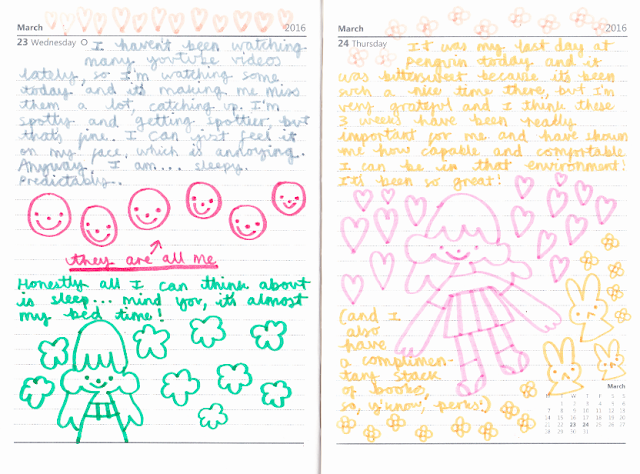 March 2016
23 Wednesday I haven't been watching
many youtube videos
lately, so I'm watching some
today and it's making me miss
them a lot, catching up. I'm
spotty and getting spottier, but
that's fine.. I can just feel it
on my face, which is annoying..
Anyway, I am... sleepy.
Predictably..
they are all me
Honestly all I can think about
is sleep... mind you, it's almost
my bed time!
March 2016
24 Thursday It was my last day at
Penguin today and it
was bittersweet because it's been
such a nice time there, but I'm
very grateful and I think these
3 weeks have been really
important for me and have shown
me how capable and comfortable
I can be in that environment!
It's been so great!
(and I
also
have
a complimen-
tary stack
of books,
so, y'know, perks!)
March